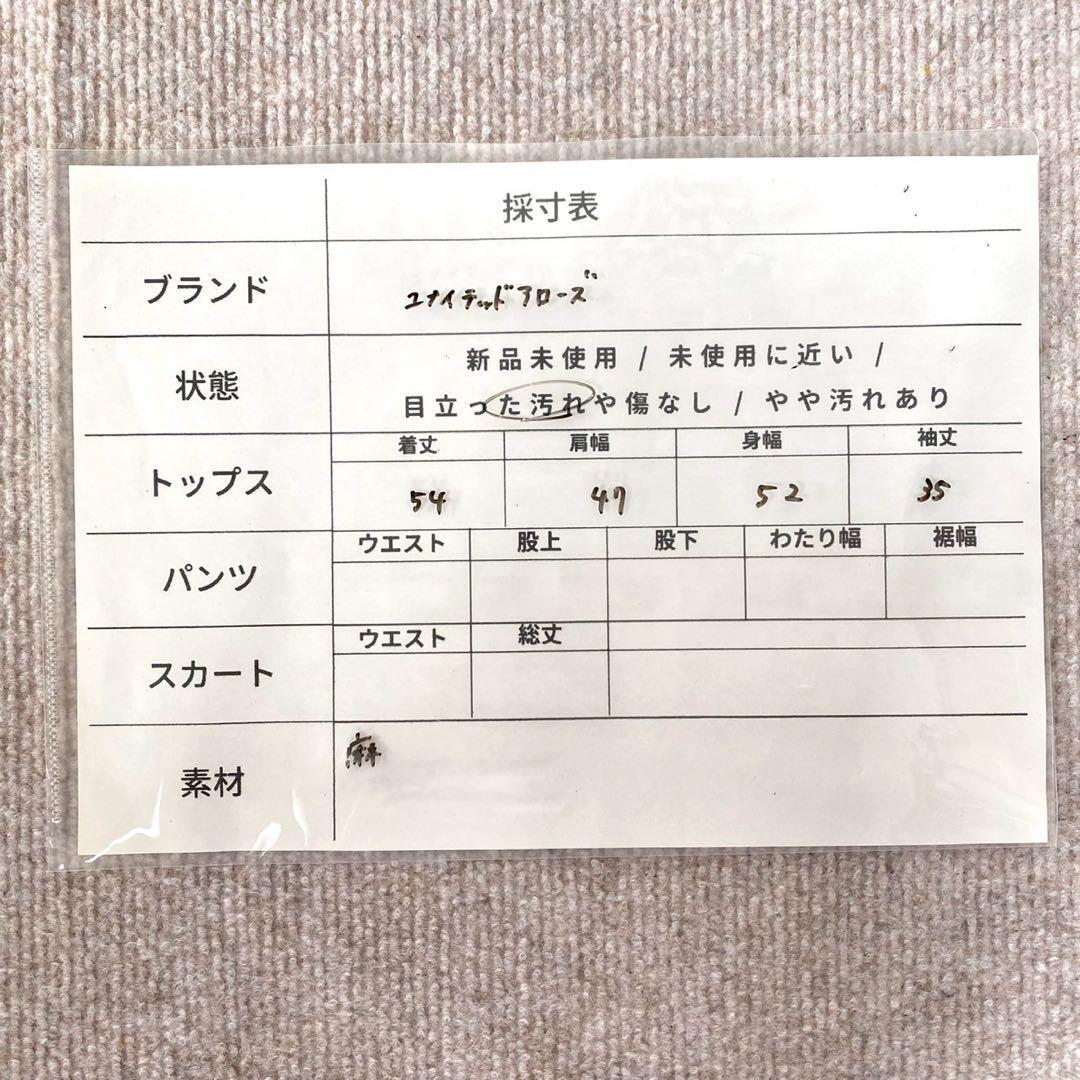 採寸表
ブランド ユナイテッドアローズ
状態 新品未使用 / 未使用に近い /
目立った汚れや傷なし / やや汚れあり
トップス 着丈 肩幅 身幅 袖丈
54 47 52 35
パンツ ウエスト 股上 股下 わたり幅 裾幅
スカート ウエスト 総丈
素材 麻